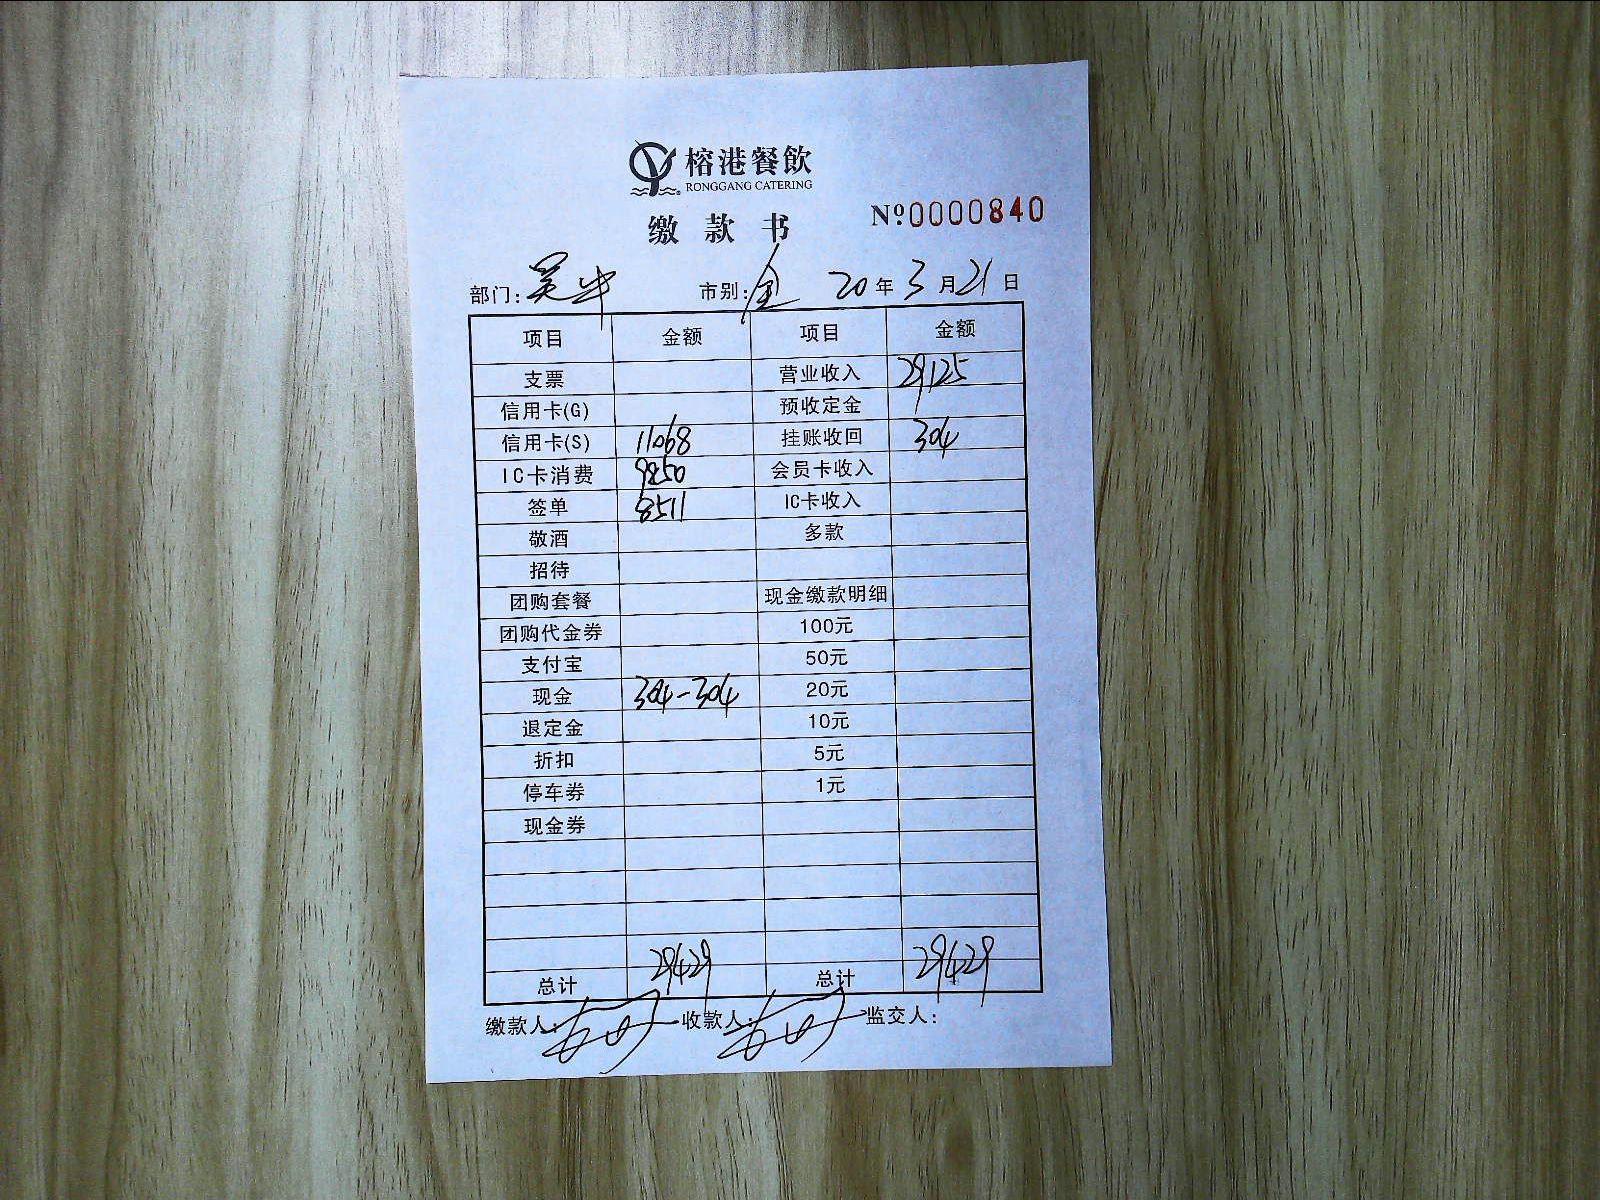 榕港餐飲
RONGGANG CATERING
缴款书
№0000840
部门: 市别: 全 20年3月21日
项目 金额 项目 金额
支票 营业收入 29125
信用卡(G) 预收定金
信用卡(S) 11068 挂账收回 304
IC卡消费 9850 会员卡收入
签单 8511 IC卡收入
敬酒 多款
招待
团购套餐 现金缴款明细
团购代金券 100元
支付宝 50元
现金 304-304 20元
退定金 10元
折扣 5元
停车券 1元
现金券
总计 29429 总计 29429
缴款人: 收款人: 监交人: